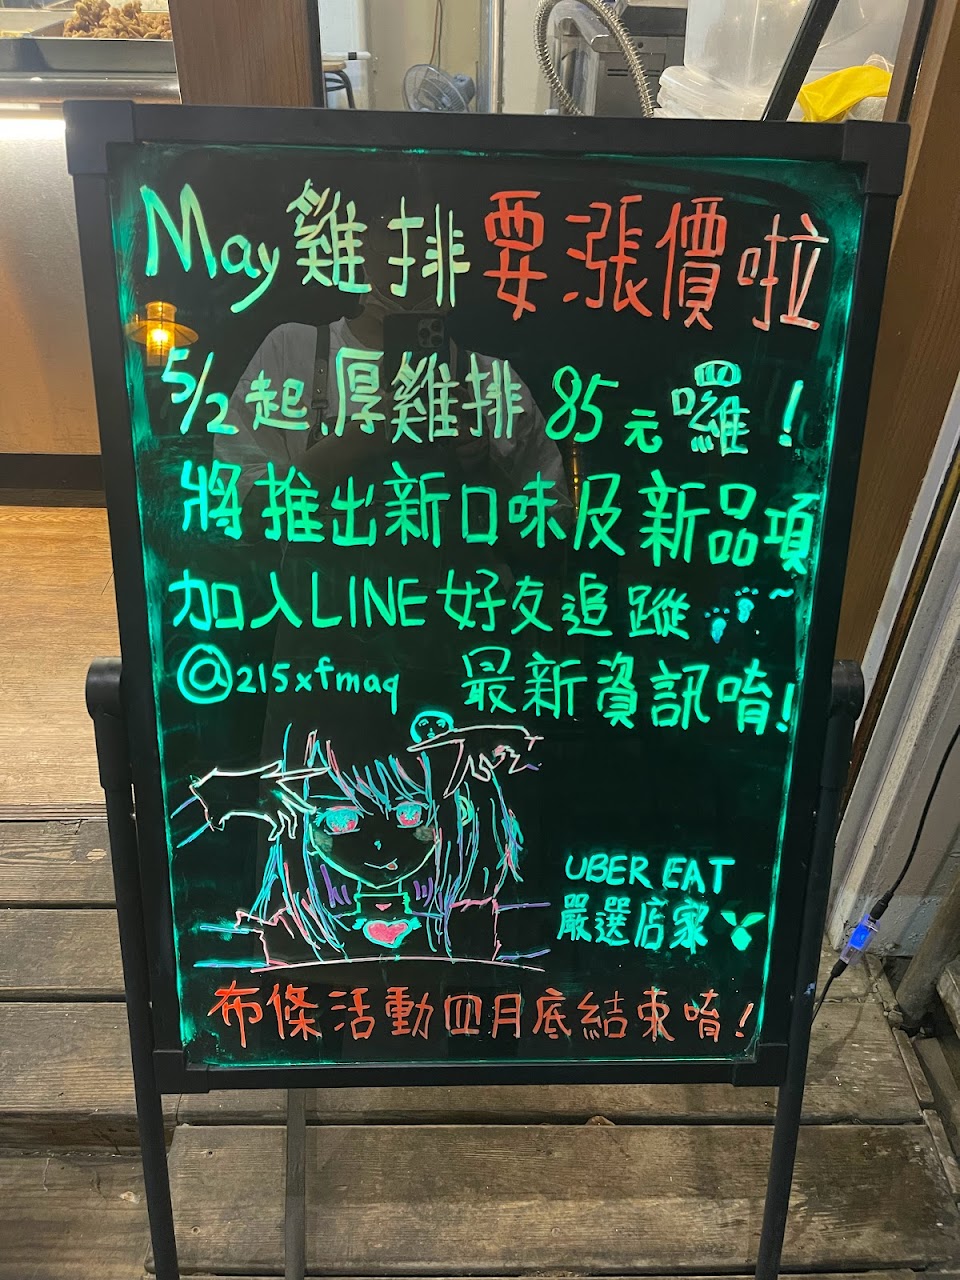 May雞排要漲價啦
5/2起.厚雞排 85元囉!
將推出新口味及新品項
加入LINE好友追蹤..~
@215xfmaq 最新資訊唷!
UBER EAT
嚴選店家
布條活動四月底結束唷!